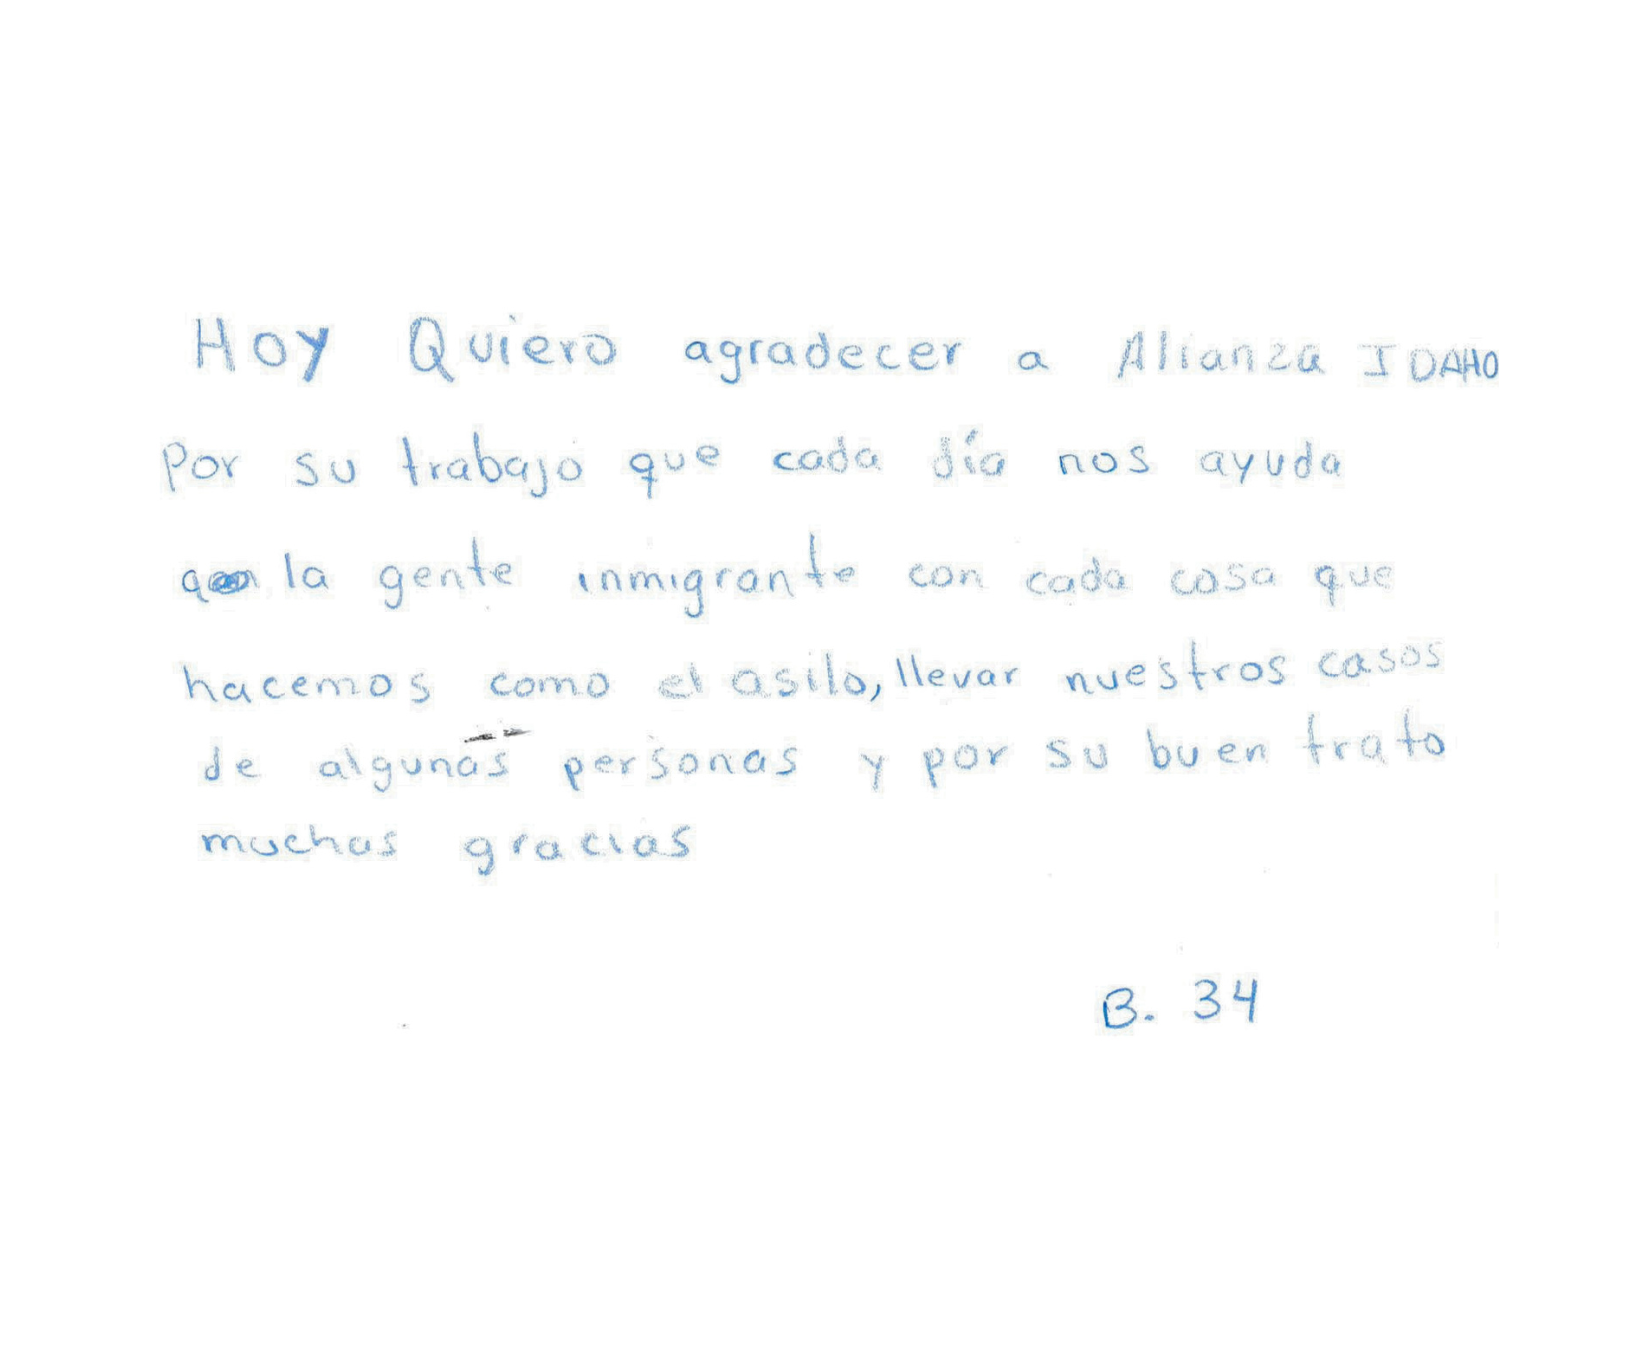 Hoy Quiero agradecer a Alianza IDAHO
Por su trabajo que cada día nos ayuda
a la gente inmigrante con cada cosa que
hacemos como el asilo, llevar nuestros casos
de algunas personas y por su buen trato
muchas gracias
B. 34